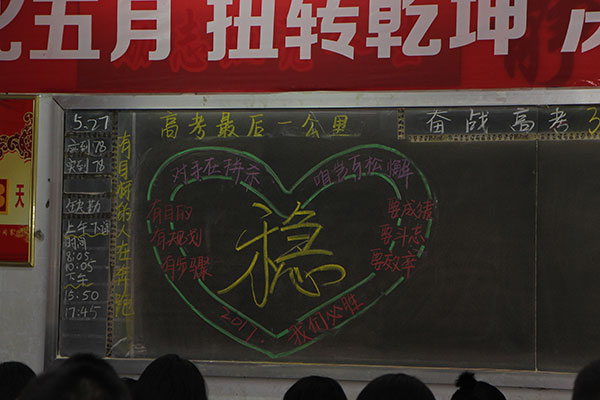 五月 扭转乾坤
天
5.27
应到78
实到78
缺勤
上午下课
时间
8:05
10:05
下午
15:50
17:45
高考最后一公里
奋战高考3
对手在拼杀
咱岂有松懈
有目的
有规划
有步骤
稳
要成绩
要斗志
要效率
2017
我们必胜